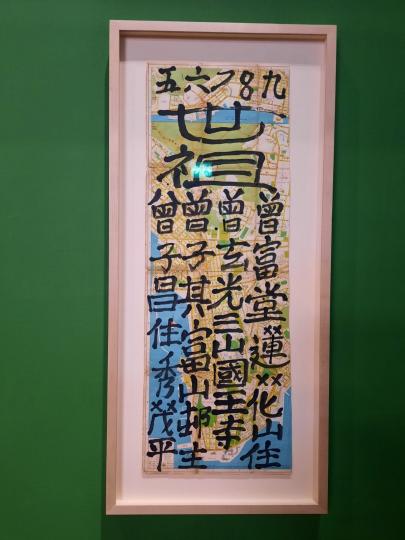 五六78九
世祖
曾富堂蓮××化山住
曾玄光三山國王寺
曾子其富山邨主
曾子昌住秀××茂平